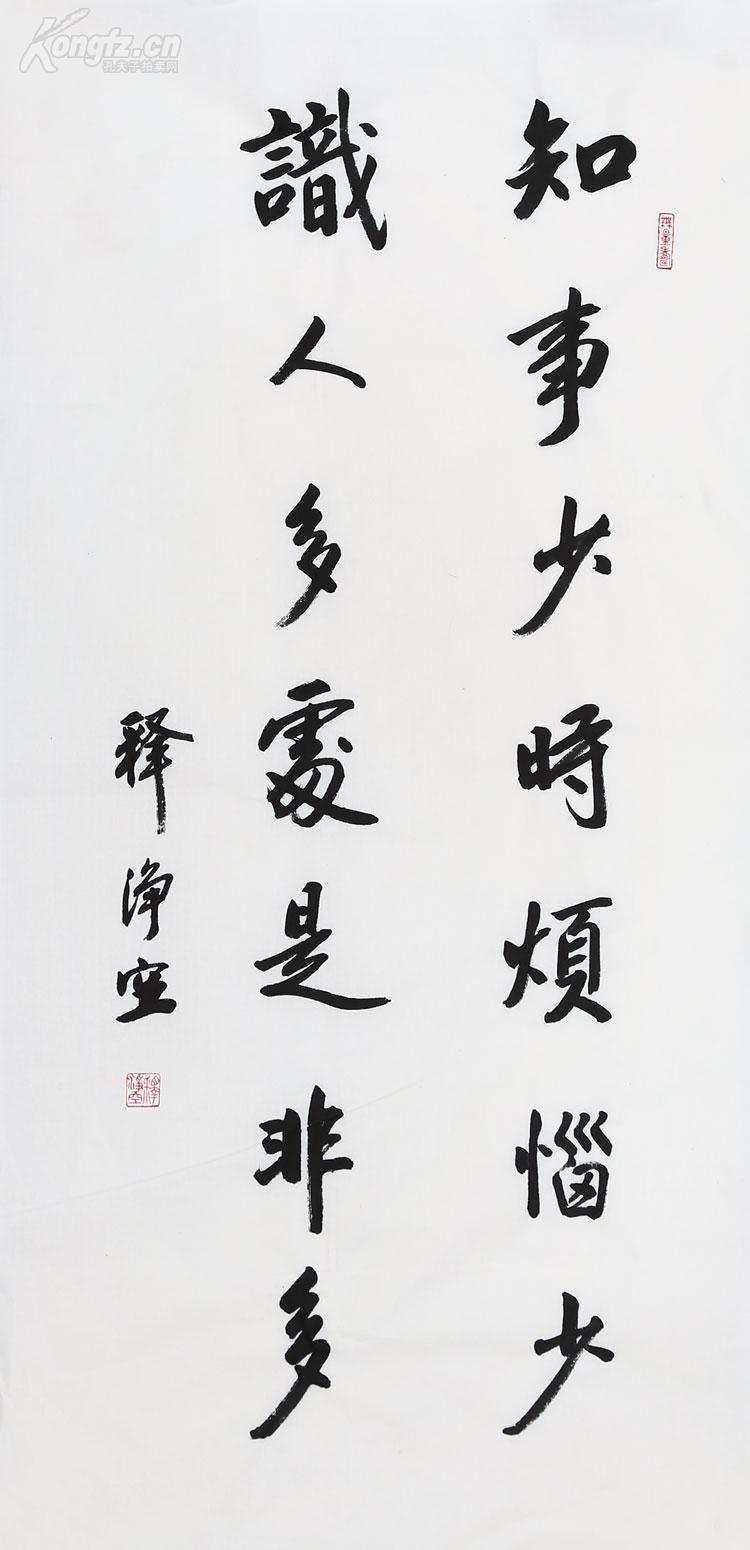 知事少時煩惱少
識人多處是非多
释淨空
Kongfz.cn
孔夫子拍卖网